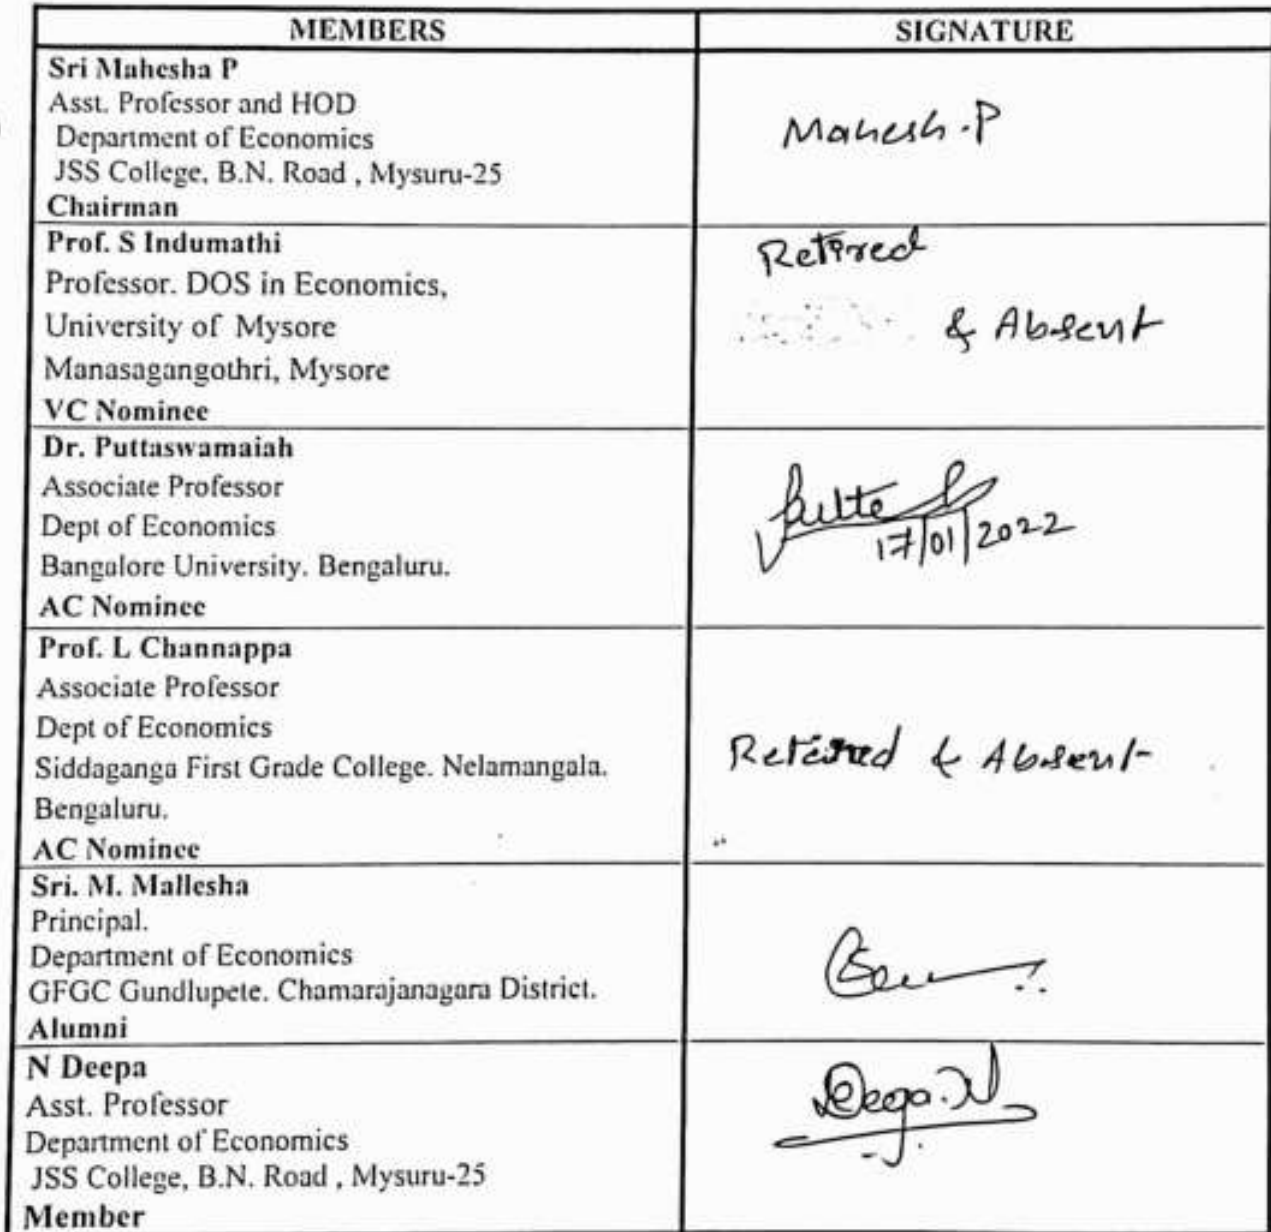 MEMBERS SIGNATURE
Sri Mahesha P
Asst. Professor and HOD
Department of Economics
JSS College, B.N. Road , Mysuru-25
Chairman
Mahesh.P
Prof. S Indumathi
Professor. DOS in Economics,
University of Mysore
Manasagangothri, Mysore
VC Nominee
Retired
& Absent
Dr. Puttaswamaiah
Associate Professor
Dept of Economics
Bangalore University. Bengaluru.
AC Nominee
17/01/2022
Prof. L Channappa
Associate Professor
Dept of Economics
Siddaganga First Grade College. Nelamangala.
Bengaluru.
AC Nominee
Retired & Absent
Sri. M. Mallesha
Principal.
Department of Economics
GFGC Gundlupete. Chamarajanagara District.
Alumni
N Deepa
Asst. Professor
Department of Economics
JSS College, B.N. Road , Mysuru-25
Member
Deepa.N